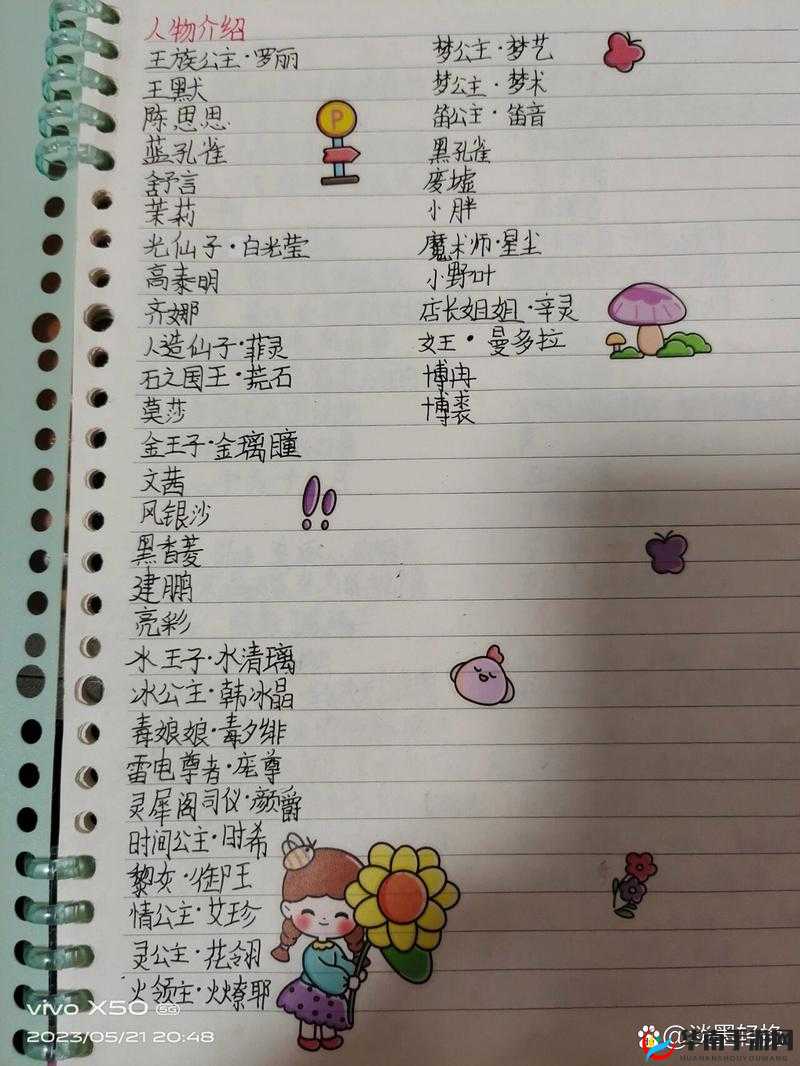 人物介绍
王族公主·罗丽
王默
陈思思
蓝孔雀
舒言
茉莉
光仙子·白光莹
高泰明
齐娜
人造仙子·菲灵
石之国王·荒石
莫莎
金王子·金璃瞳
文茜
风银沙
黑香菱
建鹏
亮彩
水王子·水清璃
冰公主·韩冰晶
毒娘娘·毒夕绯
雷电尊者·庞尊
灵犀阁司仪·颜爵
时间公主·时希
黎灰·御王
情公主·艾珍
灵公主·花翎
火领主·火燎耶
梦公主·梦艺
梦公主·梦术
笛公主·笛音
黑孔雀
废墟
小胖
魔术师·星尘
小野叶
店长姐姐·辛灵
女王·曼多拉
博冉
博裘
P
vivo X50 5G
2023/05/21 20:48
华南手游网
HUANANSHOUYOUWANG